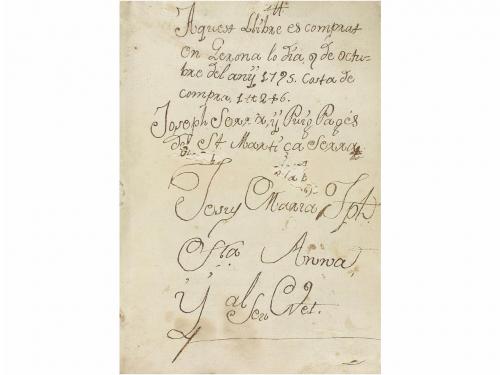 Aquest Llibre es comprat
en Gerona lo dia 9 de Octu-
bre del any 1795. Costa de
compra, 1tt 2 s 6.
Joseph Serra, y Puig Pagés
de St. Martí ça Serra
Jesus Maria Jph.
Sta Anna
Y al seu Net.